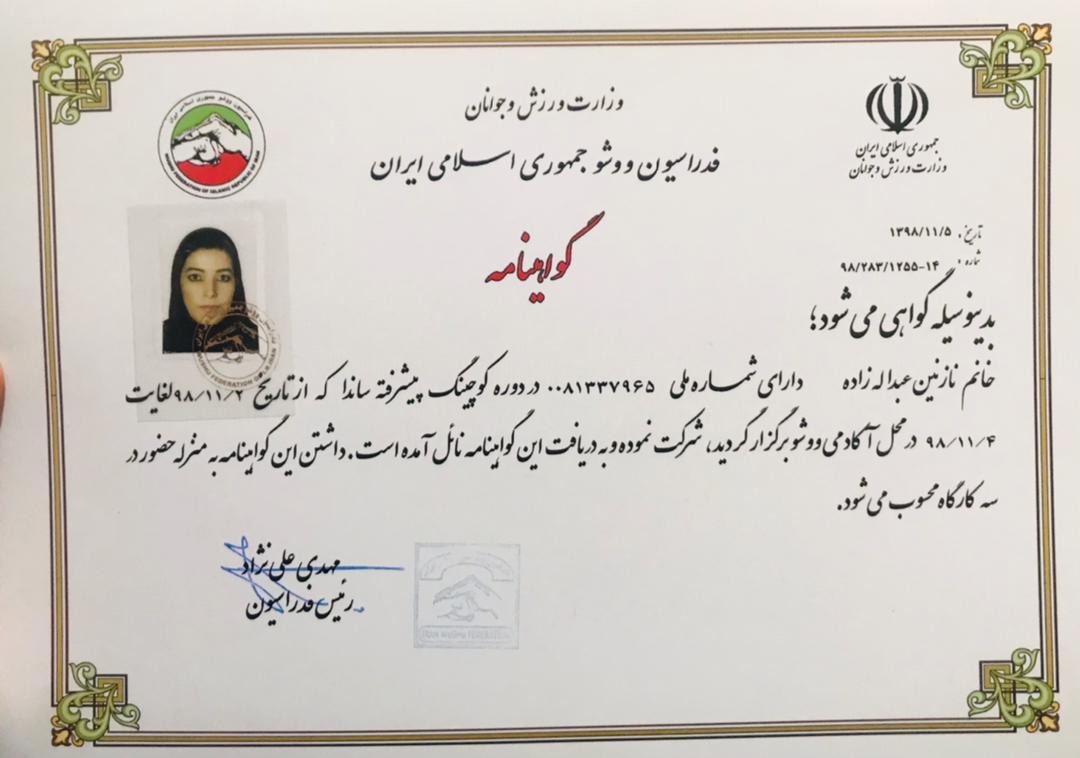 وزارت ورزش و جوانان
فدراسیون ووشو جمهوری اسلامی ایران
جمهوری اسلامی ایران
وزارت ورزش و جوانان
گواهینامه
تاریخ: ۱۳۹۸/۱۱/۵
شماره: ۹۸/۲۸۳/۱۲۵۵-۱۴
بدینوسیله گواهی می شود؛
خانم نازنین عبداله زاده دارای شماره ملی ۰۰۸۱۳۳۷۹۶۵ در دوره کوچینگ پیشرفته ساندا که از تاریخ ۹۸/۱۱/۲ لغایت
۹۸/۱۱/۴ در محل آکادمی ووشو برگزار گردید، شرکت نموده و به دریافت این گواهینامه نائل آمده است. داشتن این گواهینامه به منزله حضور در
سه کارگاه محسوب می شود.
مهدی علی نژاد
رئیس فدراسیون
IRAN WUSHU FEDERATION